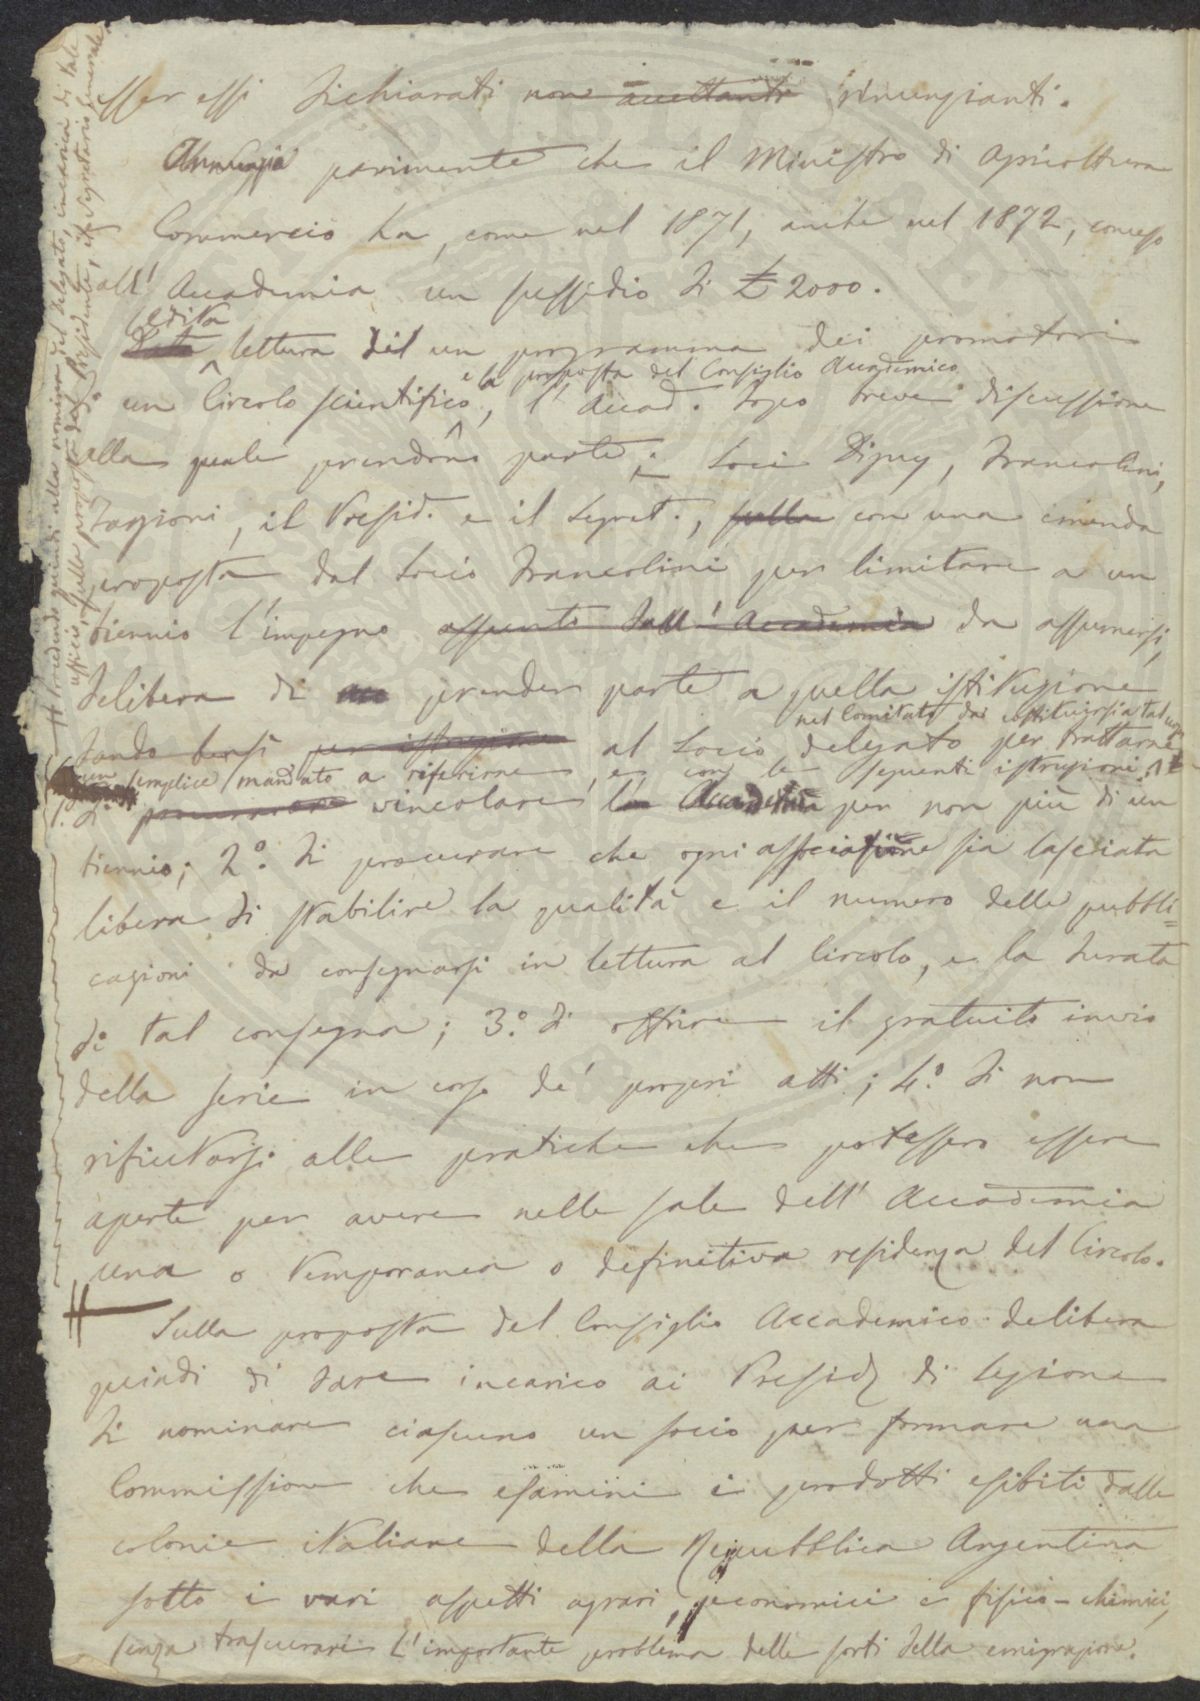 esser essi dichiarati non accettanti rinunzianti.
Annunzia parimente che il Ministro di Agricoltura
Commercio ha, come nel 1871, anche nel 1872, concesso
all' Accademia un sussidio di £ 2000.
Udita
lettura del un programma dei promotori
e la proposta del Consiglio Accademico
un Circolo scientifico, l' Accad. dopo breve discussione
alla quale prendono parte i Soci Digny, Francolini,
Targioni, il Presid. e il Segret., sulla con una emenda
proposta dal Socio Francolini per limitare a un
biennio l'impegno assunto dall' Accademia da assumersi,
delibera di prender parte a quella istituzione
nel Comitato da costituirsi a tal uopo
dando bensì per istruzione al Socio delegato per trattarne
un semplice mandato a riferirne, e con le seguenti istruzioni: 1º
di procurare vincolare l' Accademia per non più di un
biennio; 2º. di procurare che ogni associazione sia lasciata
libera di stabilire la qualità e il numero delle pubbli=
cazioni da consegnarsi in lettura al Circolo, e la durata
di tal consegna; 3º. di offrire il gratuito invio
della serie in corso de' propri atti; 4º. di non
rifiutarsi alle pratiche che potessero essere
aperte per avere nelle sale dell' Accademia
una o temporanea o definitiva residenza del Circolo.
Sulla proposta del Consiglio Accademico delibera
quindi di dare incarico ai Presid di Sezione
di nominare ciascuno un socio per formare una
Commissione che esamini i prodotti esibiti dalle
colonie italiane della Repubblica Argentina
sotto i vari aspetti agrari, economici e fisico-chimici,
senza trascurare l'importante problema delle sorti della emigrazione.
Procedendo quindi alla nomina del delegato, incarica di tale
ufficio, sulla proposta del Presidente, il Segretario Generale.